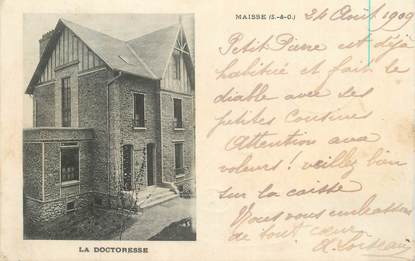 MAISSE (S.-&-O.)
24 Août 1909
Petit Pierre est déjà
habitué et fait le
diable avec ses
petites cousines
Attention aux
voleurs ! veillez bien
sur la caisse
Nous vous embrassons
de tout cœur
LA DOCTORESSE